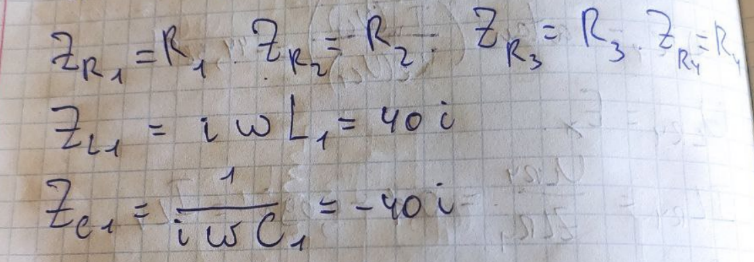 Z_{R1} = R_1 Z_{R2} = R_2 Z_{R3} = R_3 Z_{R4} = R_4
Z_{L1} = i w L_1 = 40 i
Z_{C1} = \frac{1}{i w C_1} = -40 i